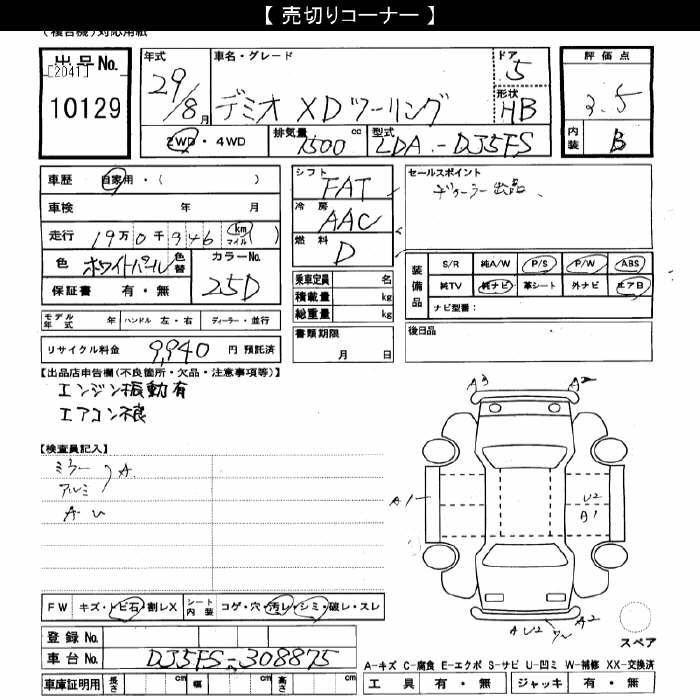 【 売切りコーナー 】
(複合機)対応用紙
出品No.
[2041]
10129
年式
29/8月
車名・グレード
デミオ XDツーリング
ドア
5
形状
HB
2WD・4WD
排気量
1500 cc
型式
LDA-DJ5FS
評価点
3.5
内装
B
車歴 自家用・( )
車検 年 月
走行 19万0千946 (km マイル)
色 ホワイトパール 色替
カラーNo.
25D
保証書 有・無
モデル年式 年 ハンドル 左・右 ディーラー・並行
リサイクル料金 9,940 円 預託済
シフト
FAT
冷房
AAC
燃料
D
乗車定員 名
積載量 kg
総重量 kg
書類期限
月 日
セールスポイント
ディーラー出品
装備品
S/R 純A/W P/S P/W ABS
純TV 純ナビ 革シート 外ナビ エアB
ナビ型番:
後日品
【出品店申告欄(不良箇所・欠品・注意事項等)】
エンジン振動有
エアコン不良
【検査員記入】
ミラー
アルミ
A
A U
A3
A2
A1
U2
A1
A2
AU2
スペア
FW キズ・トビ石・割レX シート内装 コゲ・穴・汚レ・シミ・破レ・スレ
登録No.
車台No. DJ5FS-308875
車庫証明用 長さ cm 幅 cm 高さ cm
A-キズ C-腐食 E-エクボ S-サビ U-凹ミ W-補修 XX-交換済
工具 有・無 ジャッキ 有・無